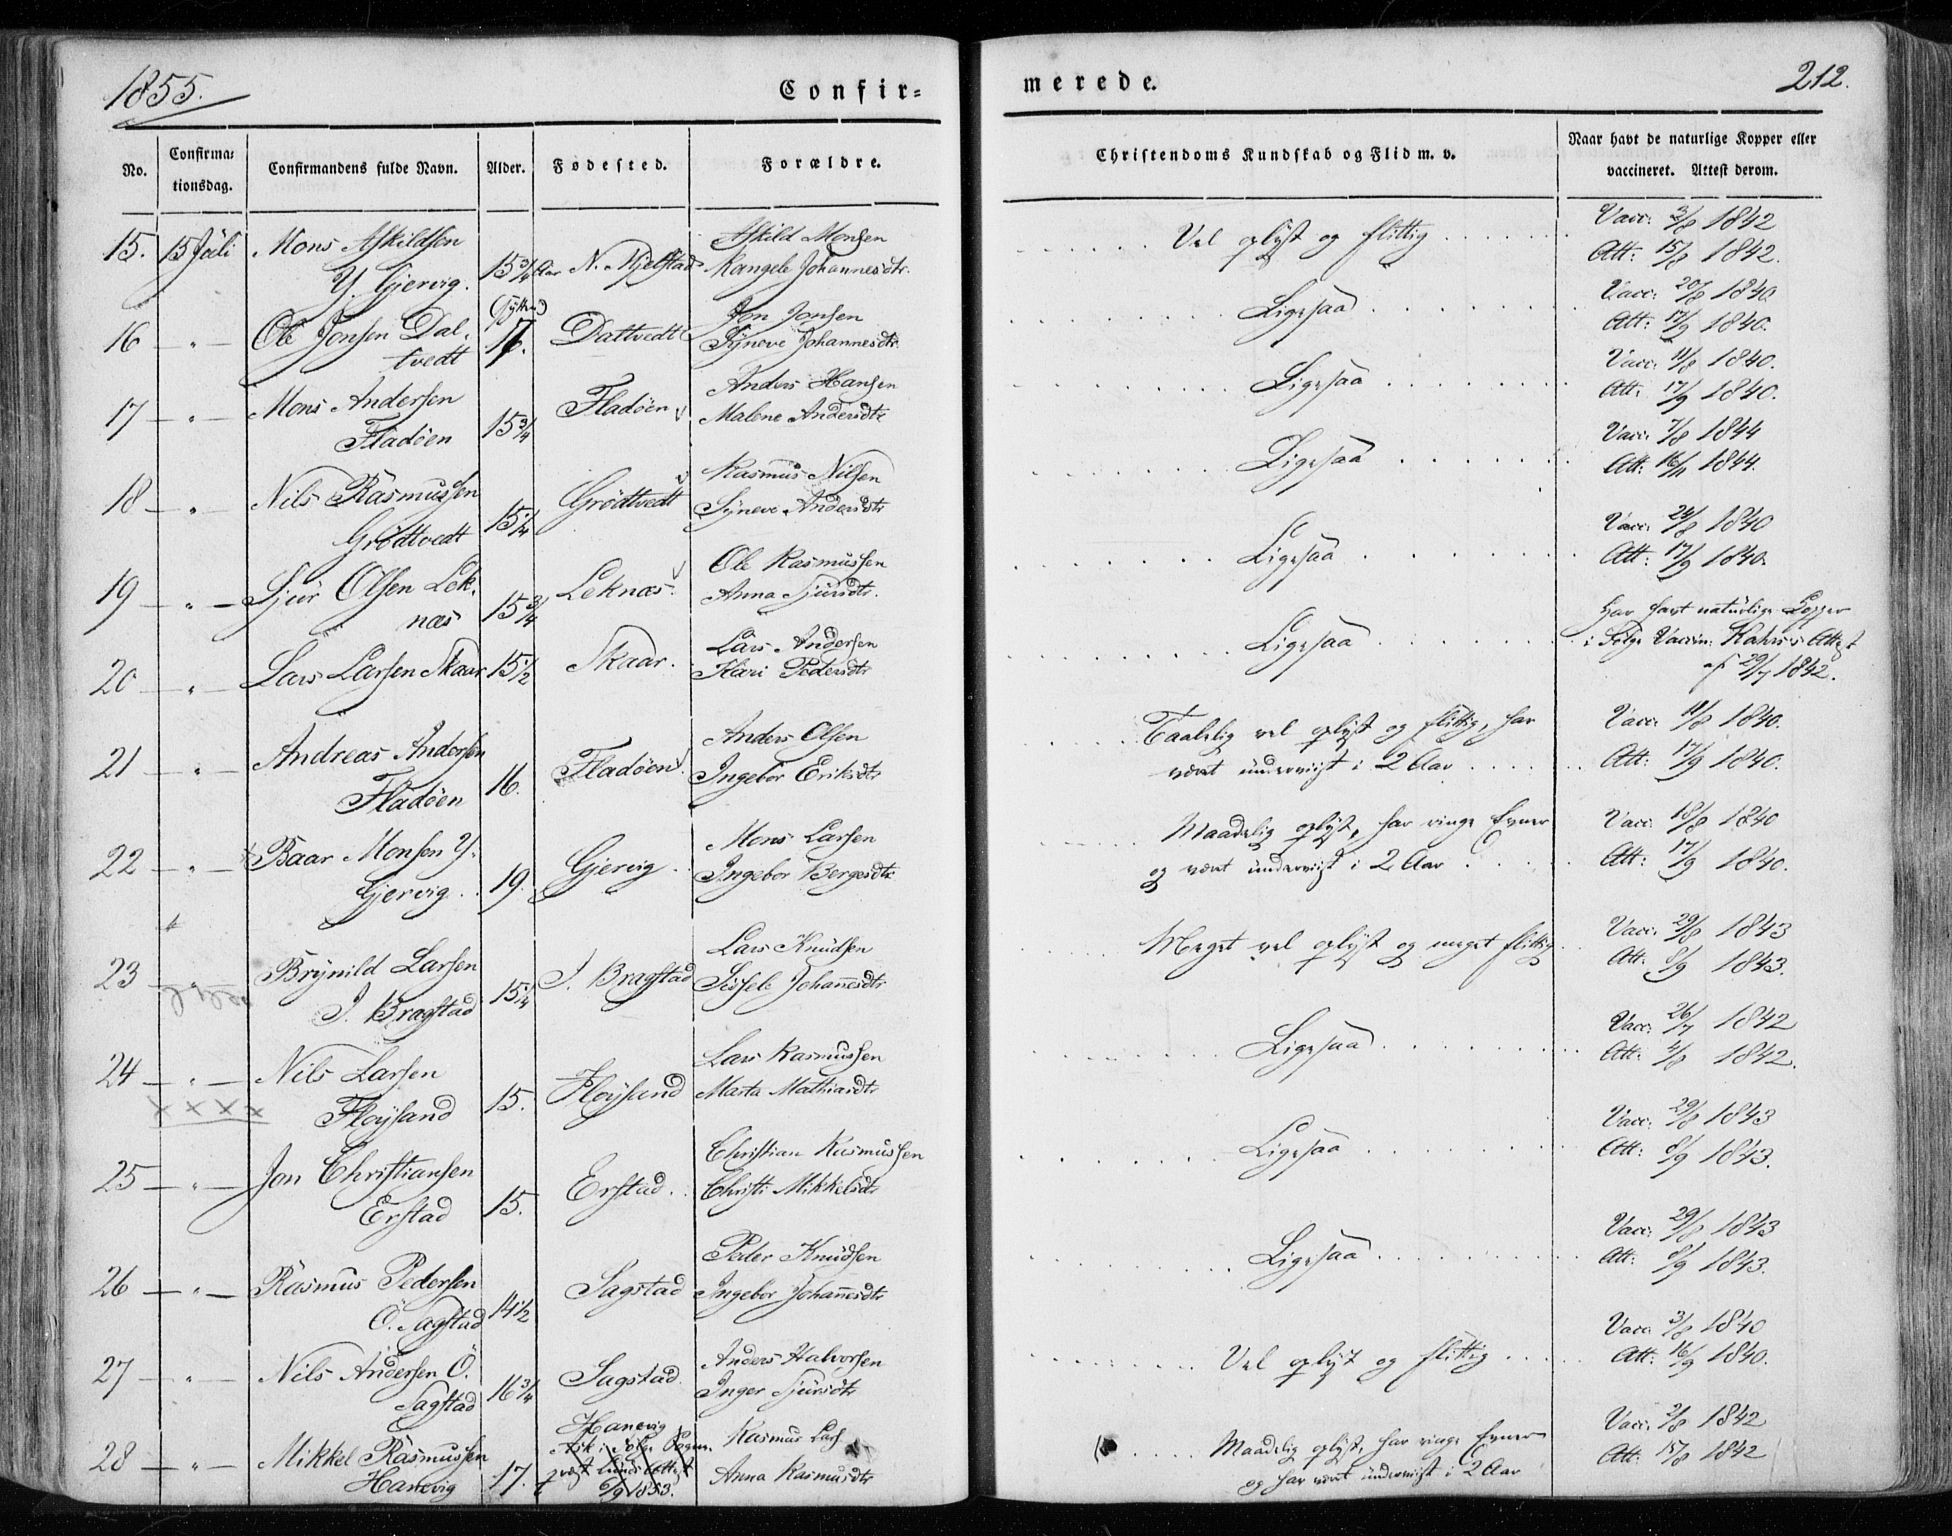 1855.
Confir-
merede.
212.
No.
Confirma-
tionsdag.
Confirmandens fulde Navn.
Alder.
Fødested.
Forældre.
Christendoms Kundskab og Flid m. v.
Naar havt de naturlige Kopper eller
vaccineret. Attest derom.
15. 15 Juli Mons Askildsen
Y. Gjervig. 15 3/4 Aar N. Mjelstad
Askild Monsen
Rangele Johannesdtr.
Vel oplyst og flittig
Vacc: 2/8 1842
Att: 15/8 1842.
16 — " — Ole Jonsen Dal-
tvedt 16. Daltvedt
Jon Jonsen
Syneve Johannesdtr.
Ligesaa
Vacc: 20/8 1840
Att: 17/9 1840.
17 — " — Mons Andersen
Fladöen 15 3/4 Fladöen
Anders Hansen
Malene Andersdtr
Ligesaa
Vacc: 11/8 1840.
Att: 17/9 1840.
18 — " — Nils Rasmussen
Grödtvedt 15 1/4 Grödtvedt
Rasmus Nilsen
Syneve Andersdtr
Ligesaa
Vacc: 7/8 1844
Att: 16/11 1844.
19 — " — Sjur Olsen Lek-
næs 15 3/4 Leknæs
Ole Rasmussen
Anna Sjursdtr.
Ligesaa
Vacc: 24/8 1840
Att: 17/9 1840.
20 — " — Lars Larsen Skaar 15 1/2 Skaar.
Lars Andersen
Kari Pedersdtr
Ligesaa
Har havt naturlige Kopper
i Følge Vaccin: Attest
af 29/7 1842.
21 — " — Andreas Andersen
Fladöen 16. Fladöen
Anders Olsen
Ingebor Eriksdtr
Taalelig vel oplyst og flittig, har
været undervist i 2 Aar
Vacc: 11/8 1840.
Att: 17/9 1840.
22 — " — Baar Monsen Y.
Gjervig. 19. Gjervig
Mons Larsen
Ingebor Bergesdtr
Maadelig oplyst, har ringe Evner
og været undervist i 2 Aar
Vacc: 18/8 1840
Att: 17/9 1840.
23 — " — Brynild Larsen
I. Bragstad 15 1/4 I. Bragstad
Lars Knudsen
Sissele Johannesdtr
Meget vel oplyst og meget flittig
Vacc: 29/8 1843
Att: 8/9 1843.
24 — " — Nils Larsen
Flöysand 15. Flöysand
Lars Rasmussen
Marta Mathiasdtr
Ligesaa
Vacc: 26/7 1842
Att: 4/8 1842.
x x x x
25 — " — Jon Christiansen
Erstad 15. Erstad.
Christian Rasmussen
Christi Mikkelsdtr
Ligesaa
Vacc: 29/8 1843
Att: 8/9 1843.
26 — " — Rasmus Pedersen
Ö. Sagstad 14 1/2 Sagstad
Peder Knudsen
Ingebor Johannesdtr
Ligesaa
Vacc: 29/8 1843
Att: 8/9 1843.
27 — " — Nils Andersen Ö.
Sagstad 16 3/4 Sagstad
Anders Halvorsen
Inger Sjursdtr
Vel oplyst og flittig
Vacc: 3/8 1840
Att: 16/9 1840.
28 — " — Mikkel Rasmussen
Hanevig 17. Hanevig
6/9 1853.
Rasmus Lars
Anna Rasmusdtr
Maadelig oplyst, har ringe Evner
og har været undervist i 2 Aar
Vacc: 2/8 1842
Att: 15/8 1842